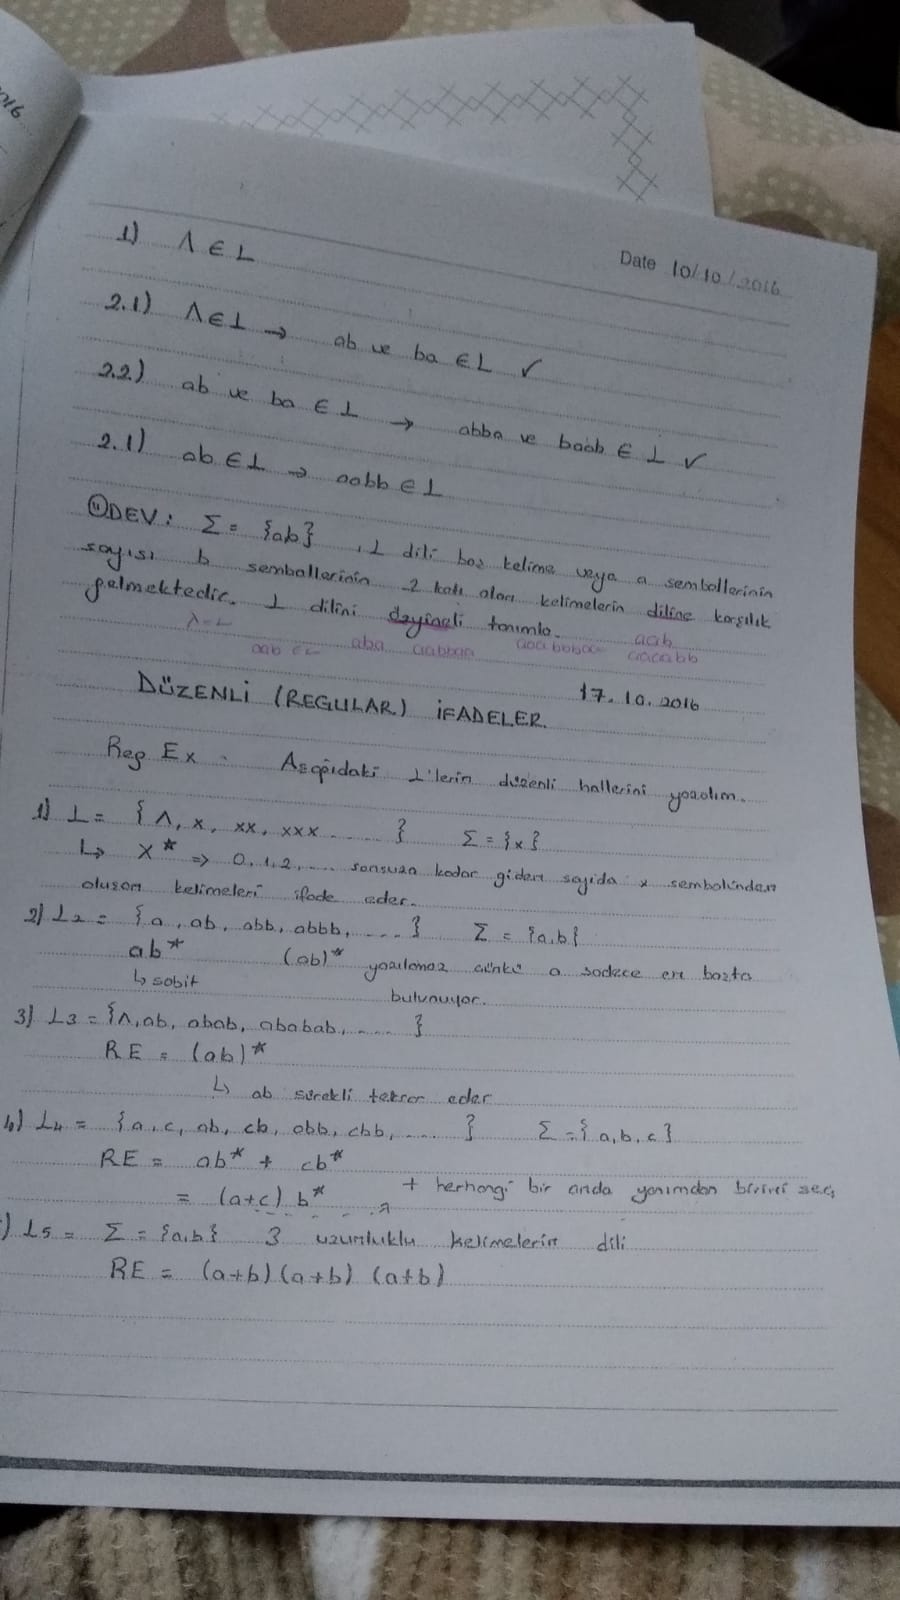 2016
Date 10/10/2016
1) Λ ∈ L
2.1) Λ ∈ L → ab ve ba ∈ L ✓
2.2) ab ve ba ∈ L → abba ve baab ∈ L ✓
2.1) ab ∈ L → aabb ∈ L
ÖDEV: Σ = {ab}, L dili boş kelime veya a sembollerinin
sayısı b sembollerinin 2 katı olan kelimelerin diline karşılık
gelmektedir. L dilini özyineli tanımla.
λ ∈ L aab
aab ∈ L aba aabbaa aaacabb
DÜZENLİ (REGULAR) İFADELER. 17.10.2016
Reg Ex. Aşağıdaki L'lerin düzenli hallerini yazalım.
1) L = {Λ, x, xx, xxx ......} Σ = {x}
↳ x* => 0,1,2,... sonsuza kadar giden sayıda x sembolünden
oluşan kelimeleri ifade eder.
2) L2 = {a, ab, abb, abbb, ....} Σ = {a,b}
ab* (ab)* yazılamaz çünkü a sadece en başta
↳ sabit bulunuyor.
3) L3 = {Λ, ab, abab, ababab, ....}
RE = (ab)*
↳ ab sürekli tekrar eder
4) L4 = {a, c, ab, cb, abb, cbb, .....} Σ = {a, b, c}
RE = ab* + cb*
= (a+c) b* + herhangi bir anda yanımdan birini seç
) L5 = Σ = {a,b} 3 uzunluklu kelimelerin dili
RE = (a+b)(a+b)(a+b)